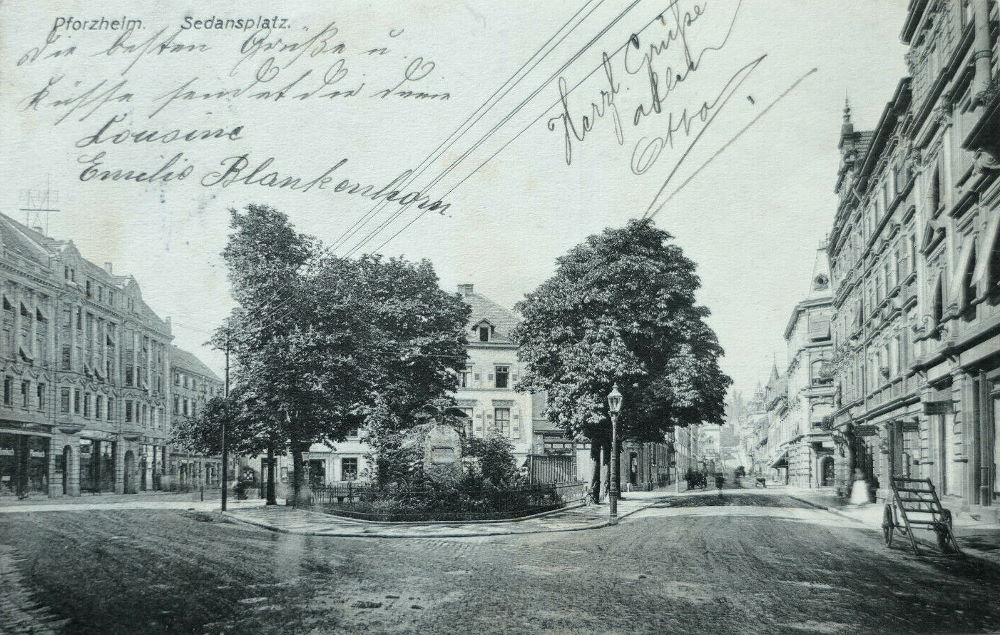 Pforzheim. Sedansplatz.
Die besten Grüße u.
Küsse sendet dir deine
Cousine
Emilie Blankenhorn.
Herzl. Grüße
Otto.